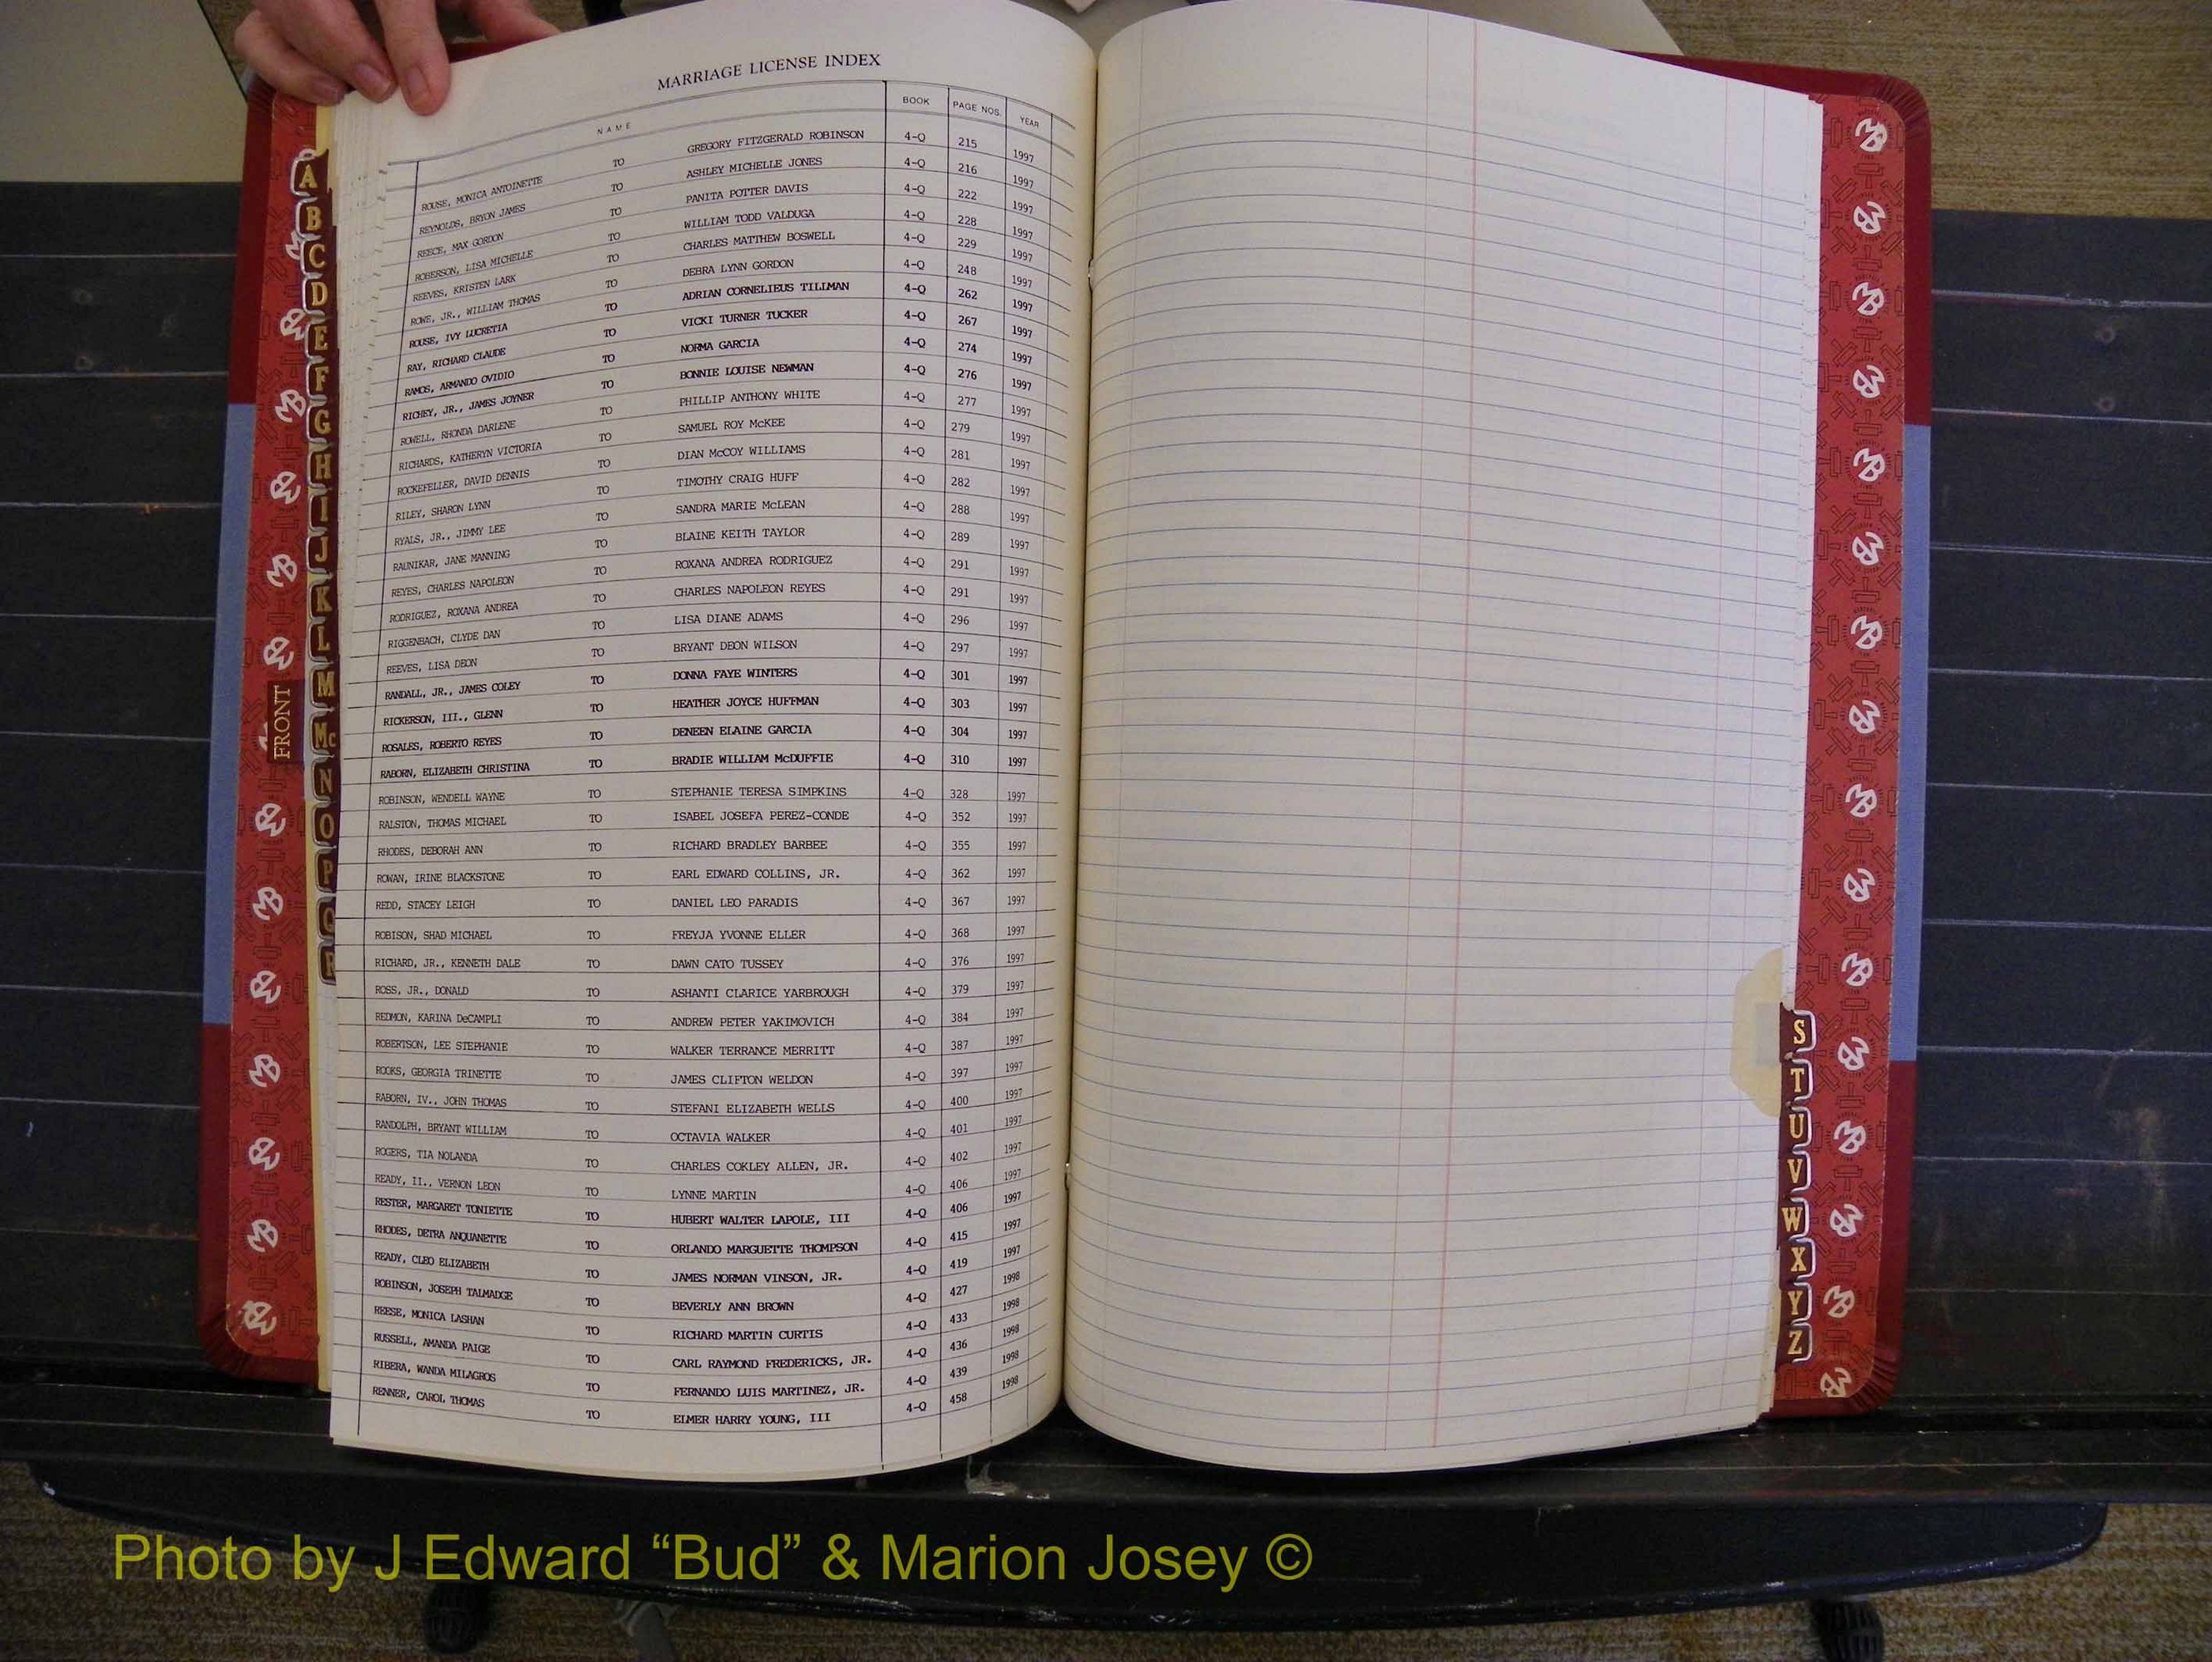 MARRIAGE LICENSE INDEX
NAME BOOK PAGE NOS. YEAR
ROUSE, MONICA ANTOINETTE TO GREGORY FITZGERALD ROBINSON 4-Q 215 1997
REYNOLDS, BRYON JAMES TO ASHLEY MICHELLE JONES 4-Q 216 1997
REECE, MAX GORDON TO PANITA POTTER DAVIS 4-Q 222 1997
ROBERSON, LISA MICHELLE TO WILLIAM TODD VALDUGA 4-Q 228 1997
REEVES, KRISTEN LARK TO CHARLES MATTHEW BOSWELL 4-Q 229 1997
ROWE, JR., WILLIAM THOMAS TO DEBRA LYNN GORDON 4-Q 248 1997
ROUSE, IVY LUCRETIA TO ADRIAN CORNELIEUS TILLMAN 4-Q 262 1997
RAY, RICHARD CLAUDE TO VICKI TURNER TUCKER 4-Q 267 1997
RAMOS, ARMANDO OVIDIO TO NORMA GARCIA 4-Q 274 1997
RICHEY, JR., JAMES JOYNER TO BONNIE LOUISE NEWMAN 4-Q 276 1997
ROWELL, RHONDA DARLENE TO PHILLIP ANTHONY WHITE 4-Q 277 1997
RICHARDS, KATHERYN VICTORIA TO SAMUEL ROY McKEE 4-Q 279 1997
ROCKEFELLER, DAVID DENNIS TO DIAN McCOY WILLIAMS 4-Q 281 1997
RILEY, SHARON LYNN TO TIMOTHY CRAIG HUFF 4-Q 282 1997
RYALS, JR., JIMMY LEE TO SANDRA MARIE McLEAN 4-Q 288 1997
RAUNIKAR, JANE MANNING TO BLAINE KEITH TAYLOR 4-Q 289 1997
REYES, CHARLES NAPOLEON TO ROXANA ANDREA RODRIGUEZ 4-Q 291 1997
RODRIGUEZ, ROXANA ANDREA TO CHARLES NAPOLEON REYES 4-Q 291 1997
RIGGENBACH, CLYDE DAN TO LISA DIANE ADAMS 4-Q 296 1997
REEVES, LISA DEON TO BRYANT DEON WILSON 4-Q 297 1997
RANDALL, JR., JAMES COLEY TO DONNA FAYE WINTERS 4-Q 301 1997
RICKERSON, III., GLENN TO HEATHER JOYCE HUFFMAN 4-Q 303 1997
ROSALES, ROBERTO REYES TO DENEEN ELAINE GARCIA 4-Q 304 1997
RABORN, ELIZABETH CHRISTINA TO BRADIE WILLIAM McDUFFIE 4-Q 310 1997
ROBINSON, WENDELL WAYNE TO STEPHANIE TERESA SIMPKINS 4-Q 328 1997
RALSTON, THOMAS MICHAEL TO ISABEL JOSEFA PEREZ-CONDE 4-Q 352 1997
RHODES, DEBORAH ANN TO RICHARD BRADLEY BARBEE 4-Q 355 1997
ROWAN, IRINE BLACKSTONE TO EARL EDWARD COLLINS, JR. 4-Q 362 1997
REDD, STACEY LEIGH TO DANIEL LEO PARADIS 4-Q 367 1997
ROBISON, SHAD MICHAEL TO FREYJA YVONNE ELLER 4-Q 368 1997
RICHARD, JR., KENNETH DALE TO DAWN CATO TUSSEY 4-Q 376 1997
ROSS, JR., DONALD TO ASHANTI CLARICE YARBROUGH 4-Q 379 1997
REDMON, KARINA DeCAMPLI TO ANDREW PETER YAKIMOVICH 4-Q 384 1997
ROBERTSON, LEE STEPHANIE TO WALKER TERRANCE MERRITT 4-Q 387 1997
ROOKS, GEORGIA TRINETTE TO JAMES CLIFTON WELDON 4-Q 397 1997
RABORN, IV., JOHN THOMAS TO STEFANI ELIZABETH WELLS 4-Q 400 1997
RANDOLPH, BRYANT WILLIAM TO OCTAVIA WALKER 4-Q 401 1997
ROGERS, TIA NOLANDA TO CHARLES COKLEY ALLEN, JR. 4-Q 402 1997
READY, II., VERNON LEON TO LYNNE MARTIN 4-Q 406 1997
RESTER, MARGARET TONIETTE TO HUBERT WALTER LAPOLE, III 4-Q 406 1997
RHODES, DETRA ANQUANETTE TO ORLANDO MARGUETTE THOMPSON 4-Q 415 1997
READY, CLEO ELIZABETH TO JAMES NORMAN VINSON, JR. 4-Q 419 1997
ROBINSON, JOSEPH TALMADGE TO BEVERLY ANN BROWN 4-Q 427 1998
REESE, MONICA LASHAN TO RICHARD MARTIN CURTIS 4-Q 433 1998
RUSSELL, AMANDA PAIGE TO CARL RAYMOND FREDERICKS, JR. 4-Q 436 1998
RIBERA, WANDA MILAGROS TO FERNANDO LUIS MARTINEZ, JR. 4-Q 439 1998
RENNER, CAROL THOMAS TO ELMER HARRY YOUNG, III 4-Q 458 1998
FRONT
A
B
C
D
E
F
G
H
I
J
K
L
M
Mc
N
O
P
Q
R
S
T
U
V
W
X
Y
Z
Photo by J Edward “Bud” & Marion Josey ©